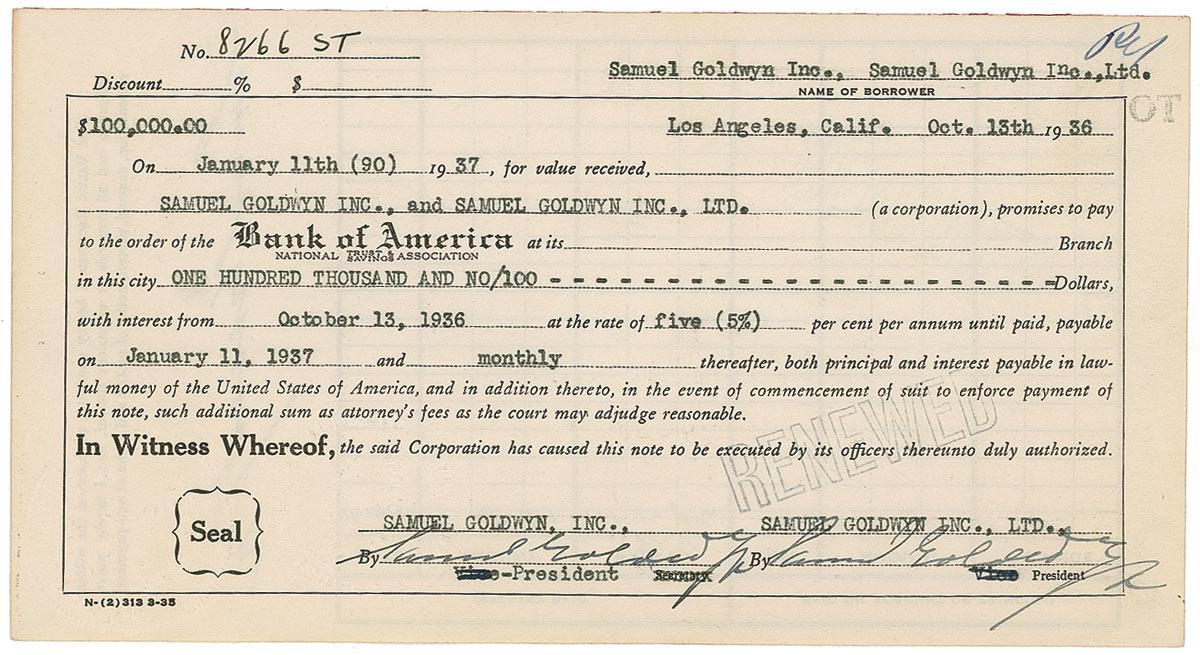 No. 8266 ST
Discount % $
Samuel Goldwyn Inc., Samuel Goldwyn Inc.,Ltd.
NAME OF BORROWER
OT
$100,000.00 Los Angeles, Calif. Oct. 13th 1936
On January 11th (90) 1937, for value received,
SAMUEL GOLDWYN INC., and SAMUEL GOLDWYN INC., LTD. (a corporation), promises to pay
to the order of the Bank of America at its Branch
NATIONAL TRUST & SAVINGS ASSOCIATION
in this city ONE HUNDRED THOUSAND AND NO/100 - - - - - - - - - - - - - - - - - - - - Dollars,
with interest from October 13, 1936 at the rate of five (5%) per cent per annum until paid, payable
on January 11, 1937 and monthly thereafter, both principal and interest payable in law-
ful money of the United States of America, and in addition thereto, in the event of commencement of suit to enforce payment of
this note, such additional sum as attorney's fees as the court may adjudge reasonable.
RENEWED
In Witness Whereof, the said Corporation has caused this note to be executed by its officers thereunto duly authorized.
Seal
SAMUEL GOLDWYN, INC., SAMUEL GOLDWYN INC., LTD.,
By Samuel Goldwyn By Samuel Goldwyn
Vice-President Secretary Vice President
N-(2)313 3-35